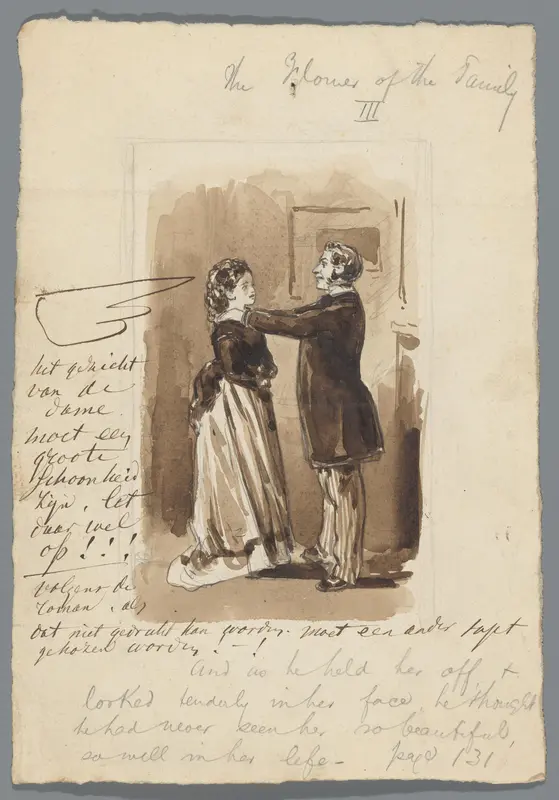 The Flower of the Family
III
het gezicht
van de
dame
moet een
groote
schoonheid
zijn, let
daar wel
op!!!
volgens de
roman, als
dat niet gedrukt kan worden. moet een ander sujet
gekozen worden. - !
And as he held her off, +
looked tenderly in her face, he thought
he had never seen her so beautiful,
so well in her life - page 131